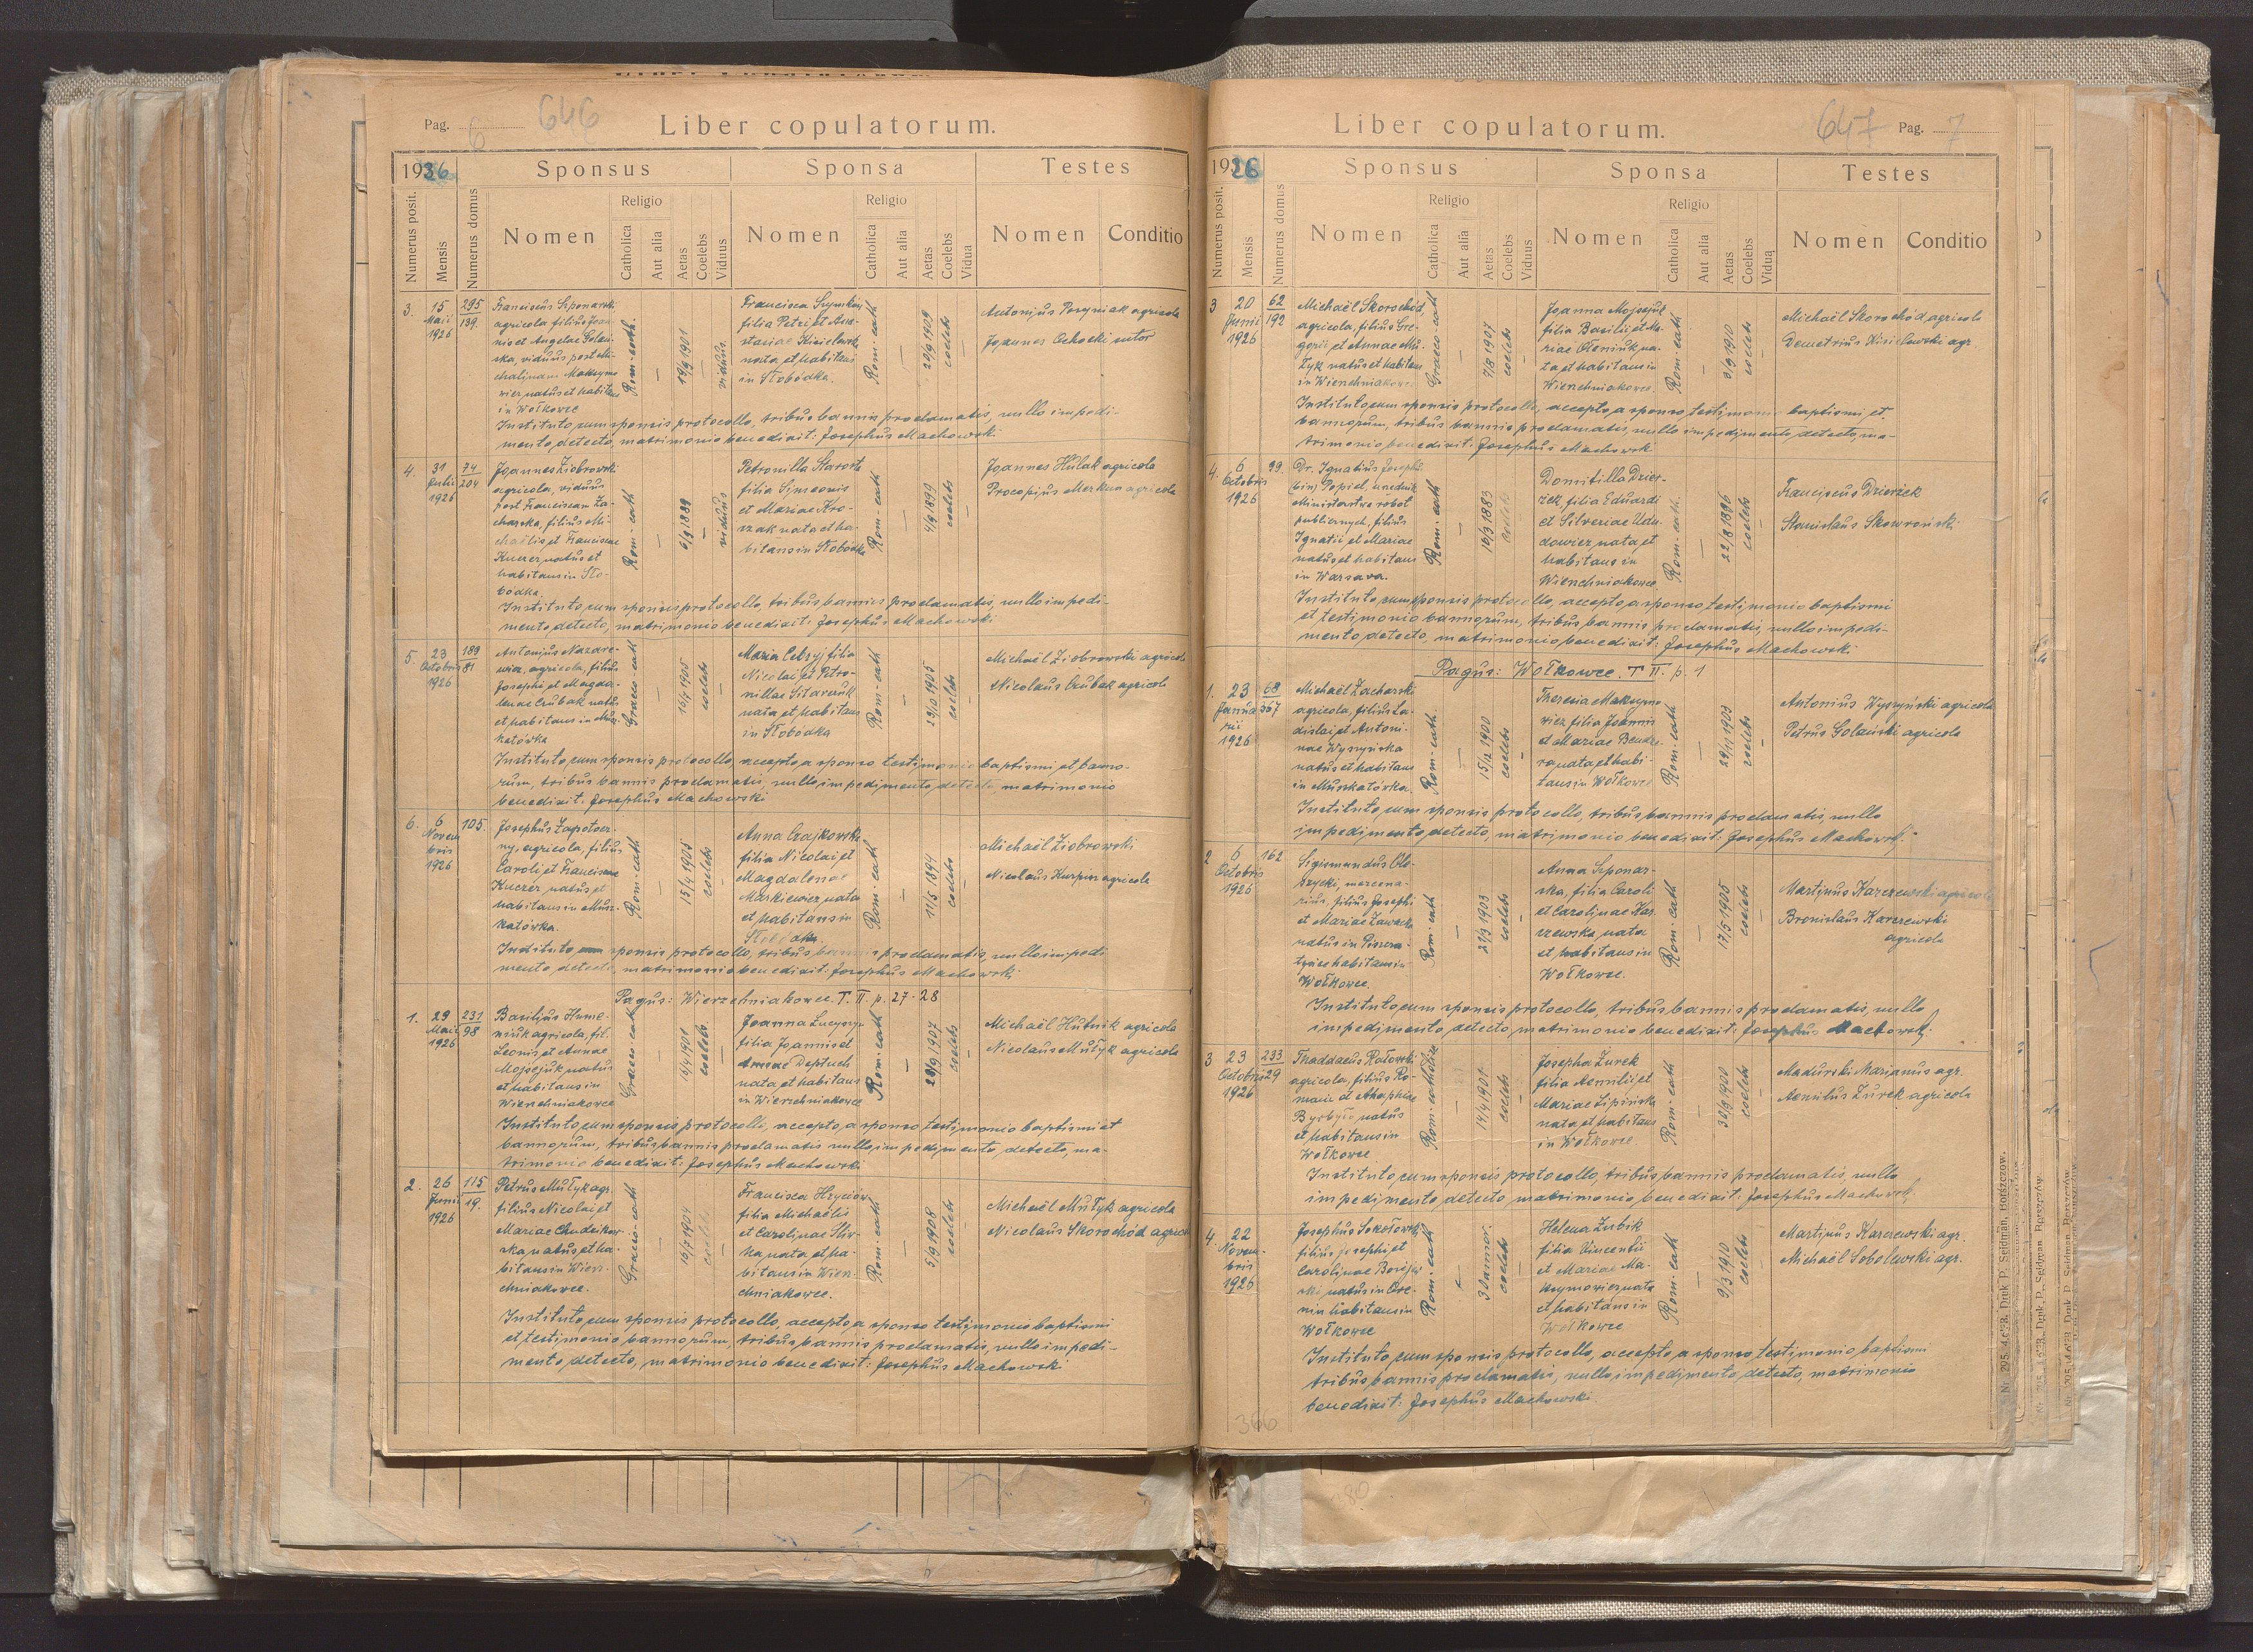 Pag. 6
646
Liber copulatorum.
1926
Sponsus
Sponsa
Testes
Numerus posit.
Mensis
Numerus domus
Nomen
Religio
Catholica
Aut alia
Aetas
Coelebs
Viduus
Nomen
Religio
Catholica
Aut alia
Aetas
Coelebs
Vidua
Nomen
Conditio
3.
15
Maii
1926
295
189.
Franciscus Szponarski
agricola filius Joan-
nis et Angelae Golan-
ska, viduus post Mi-
chalinam Maksymo
wicz, natus et habitans
in Wołkowce
Rom-cath.
—
19/9 1901
—
viduus.
Francisca
filia Petri et Ana-
stasiae Kisielewska
nata et habitans
in Słobódka.
Rom-cath
—
20/9 1909
coelebs
—
Antonius agricola
Joannes Ochocki sutor
Instituto cum sponsis protocollo, tribus bannis proclamatis, nullo impedi-
mento, detecto, matrimonio benedixit: Josephus Machowski
4.
31
Julii
1926
74
204
Joannes Ziobrowski
agricola, viduus
post Franciscam Za-
charska, filius Mi-
chaelis et Franciscae
Kuczer, natus et
habitans in Sło-
bódka.
Rom-cath
—
6/9 1889
—
viduus
Petronilla Starosta
filia Simeonis
et Mariae Kro-
czak nata et ha-
bitans in Słobódka
Rom-cath
—
4/9 1899
coelebs
—
Joannes Hulak agricola
Procopius Merkun agricola
Instituto, cum sponsis protocollo, tribus bannis proclamatis, nullo impedi-
mento, detecto, matrimonio benedixit: Josephus Machowski
5.
23
Octobris
1926
189
81
Antonius Nazare-
wicz, agricola, filius
Josephi et Magda-
lenae Czubak natus
et habitans in Musz-
katówka
Graeco-cath
—
16/7 1905
coelebs
—
Maria filia
Nicolai et Petro-
nillae Sitarczuk
nata et habitans
in Słobódka
Rom-cath
—
19/10 1905
coelebs
—
Michaël Ziobrowski agricola
Nicolaus Czubak agricola
Instituto cum sponsis protocollo, accepto a sponso testimonio baptismi et banno-
rum, tribus bannis proclamatis, nullo impedimento, detecto matrimonio
benedixit. Josephus Machowski
6.
6
Novem
bris
1926
105.
Josephus Zapotocz-
ny, agricola, filius
Caroli et Franciscae
Kuczer natus et
habitans in Musz-
katówka.
Rom-cath
—
15/4 1905
coelebs
—
Anna Czajkowska
filia Nicolai et
Magdalenae
Markiewicz, nata
et habitans in
Słobódka.
Rom-cath
—
11/5 1894
coelebs
—
Michaël Ziobrowski
Nicolaus Kurpisz agricola
Instituto cum sponsis protocollo, tribus bannis proclamatis, nullo impedi
mento detecto, matrimonio benedixit: Josephus Machowski
Pagus: Wierzchniakowce. T. II. p. 27-28
1.
29
Maii
1926
231
98
Basilius Hume-
niuk agricola, fil.
Leonis et Annae
Mojsejuk natus
et habitans in
Wierzchniakowce
Graeco-cath
—
16/4 1901
coelebs.
—
Joanna
filia Joannis et
Annae Deptuch
nata et habitans
in Wierzchniakowce
Rom-cath
—
29/9 1907
coelebs
—
Michaël Hutnik agricola
Nicolaus Mułyk agricola
Instituto, cum sponsis protocollo, accepto, a sponso testimonio baptismi et
bannorum, tribus bannis proclamatis nullo impedimento, detecto, ma-
trimonio benedixit: Josephus Machowski
2.
26
Junii
1926
115
19.
Petrus Mułyk agr.
filius Nicolai et
Mariae Chudzikow-
ska, natus et ha-
bitans in Wierz-
chniakowce.
Graeco-cath
—
16/7 1904
coelebs
—
Francisca Hryciów
filia Michaelis
et Carolinae Śliw-
ka nata et ha-
bitans in Wierz-
chniakowce.
Rom-cath
—
5/9 1908
coelebs
—
Michaël Mułyk agricola
Nicolaus Skorochód agricola
Instituto, cum sponsis protocollo, accepto, a sponso testimonio baptismi
et testimonio bannorum, tribus bannis proclamatis, nullo impedi-
mento, detecto, matrimonio benedixit: Josephus Machowski
Liber copulatorum.
647
Pag. 7
1926
Sponsus
Sponsa
Testes
Numerus posit.
Mensis
Numerus domus
Nomen
Religio
Catholica
Aut alia
Aetas
Coelebs
Viduus
Nomen
Religio
Catholica
Aut alia
Aetas
Coelebs
Vidua
Nomen
Conditio
3
20
Junii
1926
62
192
Michaël Skorochód,
agricola, filius Gre-
gorii et Annae Mu-
łyk natus et habitans
in Wierzchniakowce
Graeco-cath
—
7/8 1907
coelebs
—
Joanna Mojsejuk
filia Basilii et Ma-
riae Oleniuk, na-
ta et habitans in
Wierzchniakowce.
Rom-cath
—
8/9 1910
coelebs
—
Michaël Skorochód, agricola
Demetrius Kisielewski agr.
Instituto, cum sponsis protocollo, accepto, a sponso, testimonio baptismi et
bannorum, tribus bannis proclamatis, nullo impedimento, detecto, ma-
trimonio benedixit. Josephus Machowski
4.
6
Octobris
1926
99.
Dr. Ignatius Josephus
(bin) Popiel, urzędnik
Ministerstwa robot
publicznych, filius
Ignatii, et Mariae
natus et habitans
in Warsava.
Rom-cath
—
16/3 1883
coelebs
—
Domitilla Dzier-
żek, filia Eduardi
et Silveriae Udu-
dowicz, nata, et
habitans in
Wierzchniakowce.
Rom-cath.
—
22/8 1896
coelebs
—
Franciscus Dzierżek
Stanislaus Skowroński
Instituto, cum sponsis protocollo, accepto, a sponso testimonio baptismi
et testimonio bannorum, tribus bannis, proclamatis, nullo impedi-
mento, detecto, matrimonio benedixit: Josephus Machowski
Pagus: Wołkowce. T II. p. 1
1.
23
Janua
rii
1926
68
367
Michaël Zacharski
agricola, filius La-
dislai et Antoni-
nae Wyszyńska
natus et habitans
in Muszkatówka.
Rom-cath.
—
15/12 1900
coelebs
—
Theresia Maksymo
wicz filia Joannis
et Mariae Bende-
ra nata, et habi-
tans in Wołkowce
Rom-cath
—
29/11 1903
coelebs
—
Antonius Wyszyński agricola
Petrus Golański agricola
Instituto, cum sponsis protocollo, tribus bannis proclamatis, nullo
impedimento, detecto, matrimonio benedixit: Josephus Machowski.
2
6
Octobris
1926
162
Sigismundus Ole-
szycki, mercena-
rius, filius Josephi
et Mariae Zawacka
natus in
habitans in
Wołkowce.
Rom-cath
—
27/3 1903
coelebs
—
Anna Szponar-
ska, filia Caroli
et Carolinae Kar
czewska, nata
et habitans in
Wołkowce.
Rom-cath
—
17/5 1905
coelebs
—
Martinus Karczewski agricola
Bronislaus Karczewski
agricola
Instituto, cum sponsis protocollo, tribus bannis proclamatis, nullo
impedimento detecto, matrimonio benedixit: Josephus Machowski
3
23
Octobris
1926
233
29
Thaddaeus Rałowski
agricola, filius Ro-
mani et Agaphiae
natus
et habitans in
Wołkowce
Rom-catholicae
—
14/4 1901
coelebs
—
Josepha Żurek
filia Aemilii et
Mariae Lipińska
nata, et habitans
in Wołkowce.
Rom-cath
—
30/8 1900
coelebs
—
Madurski Marianus agr.
Aemilus Żurek agricola
Instituto, cum sponsis protocollo, tribus bannis proclamatis, nullo
impedimento, detecto matrimonio benedixit. Josephus Machowski
4.
22
Novem-
bris
1926
Josephus Sokołowski
filius Josephi et
Carolinae
natus in
habitans in
Wołkowce
Rom-cath
—
3
coelebs
—
Helena Zubik
filia Vincentii
et Mariae Ma-
ksymowicz nata
et habitans in
Wołkowce
Rom-cath
—
9/3 1910
coelebs
—
Martinus Karczewski agr.
Michaël Sobolewski agr.
Instituto, cum sponsis protocollo, accepto a sponso, testimonio baptismi
tribus bannis proclamatis, nullo impedimento, detecto, matrimonio
benedixit: Josephus Machowski
366
Nr. 295. Druk P. Seidman, Borszczow.
80